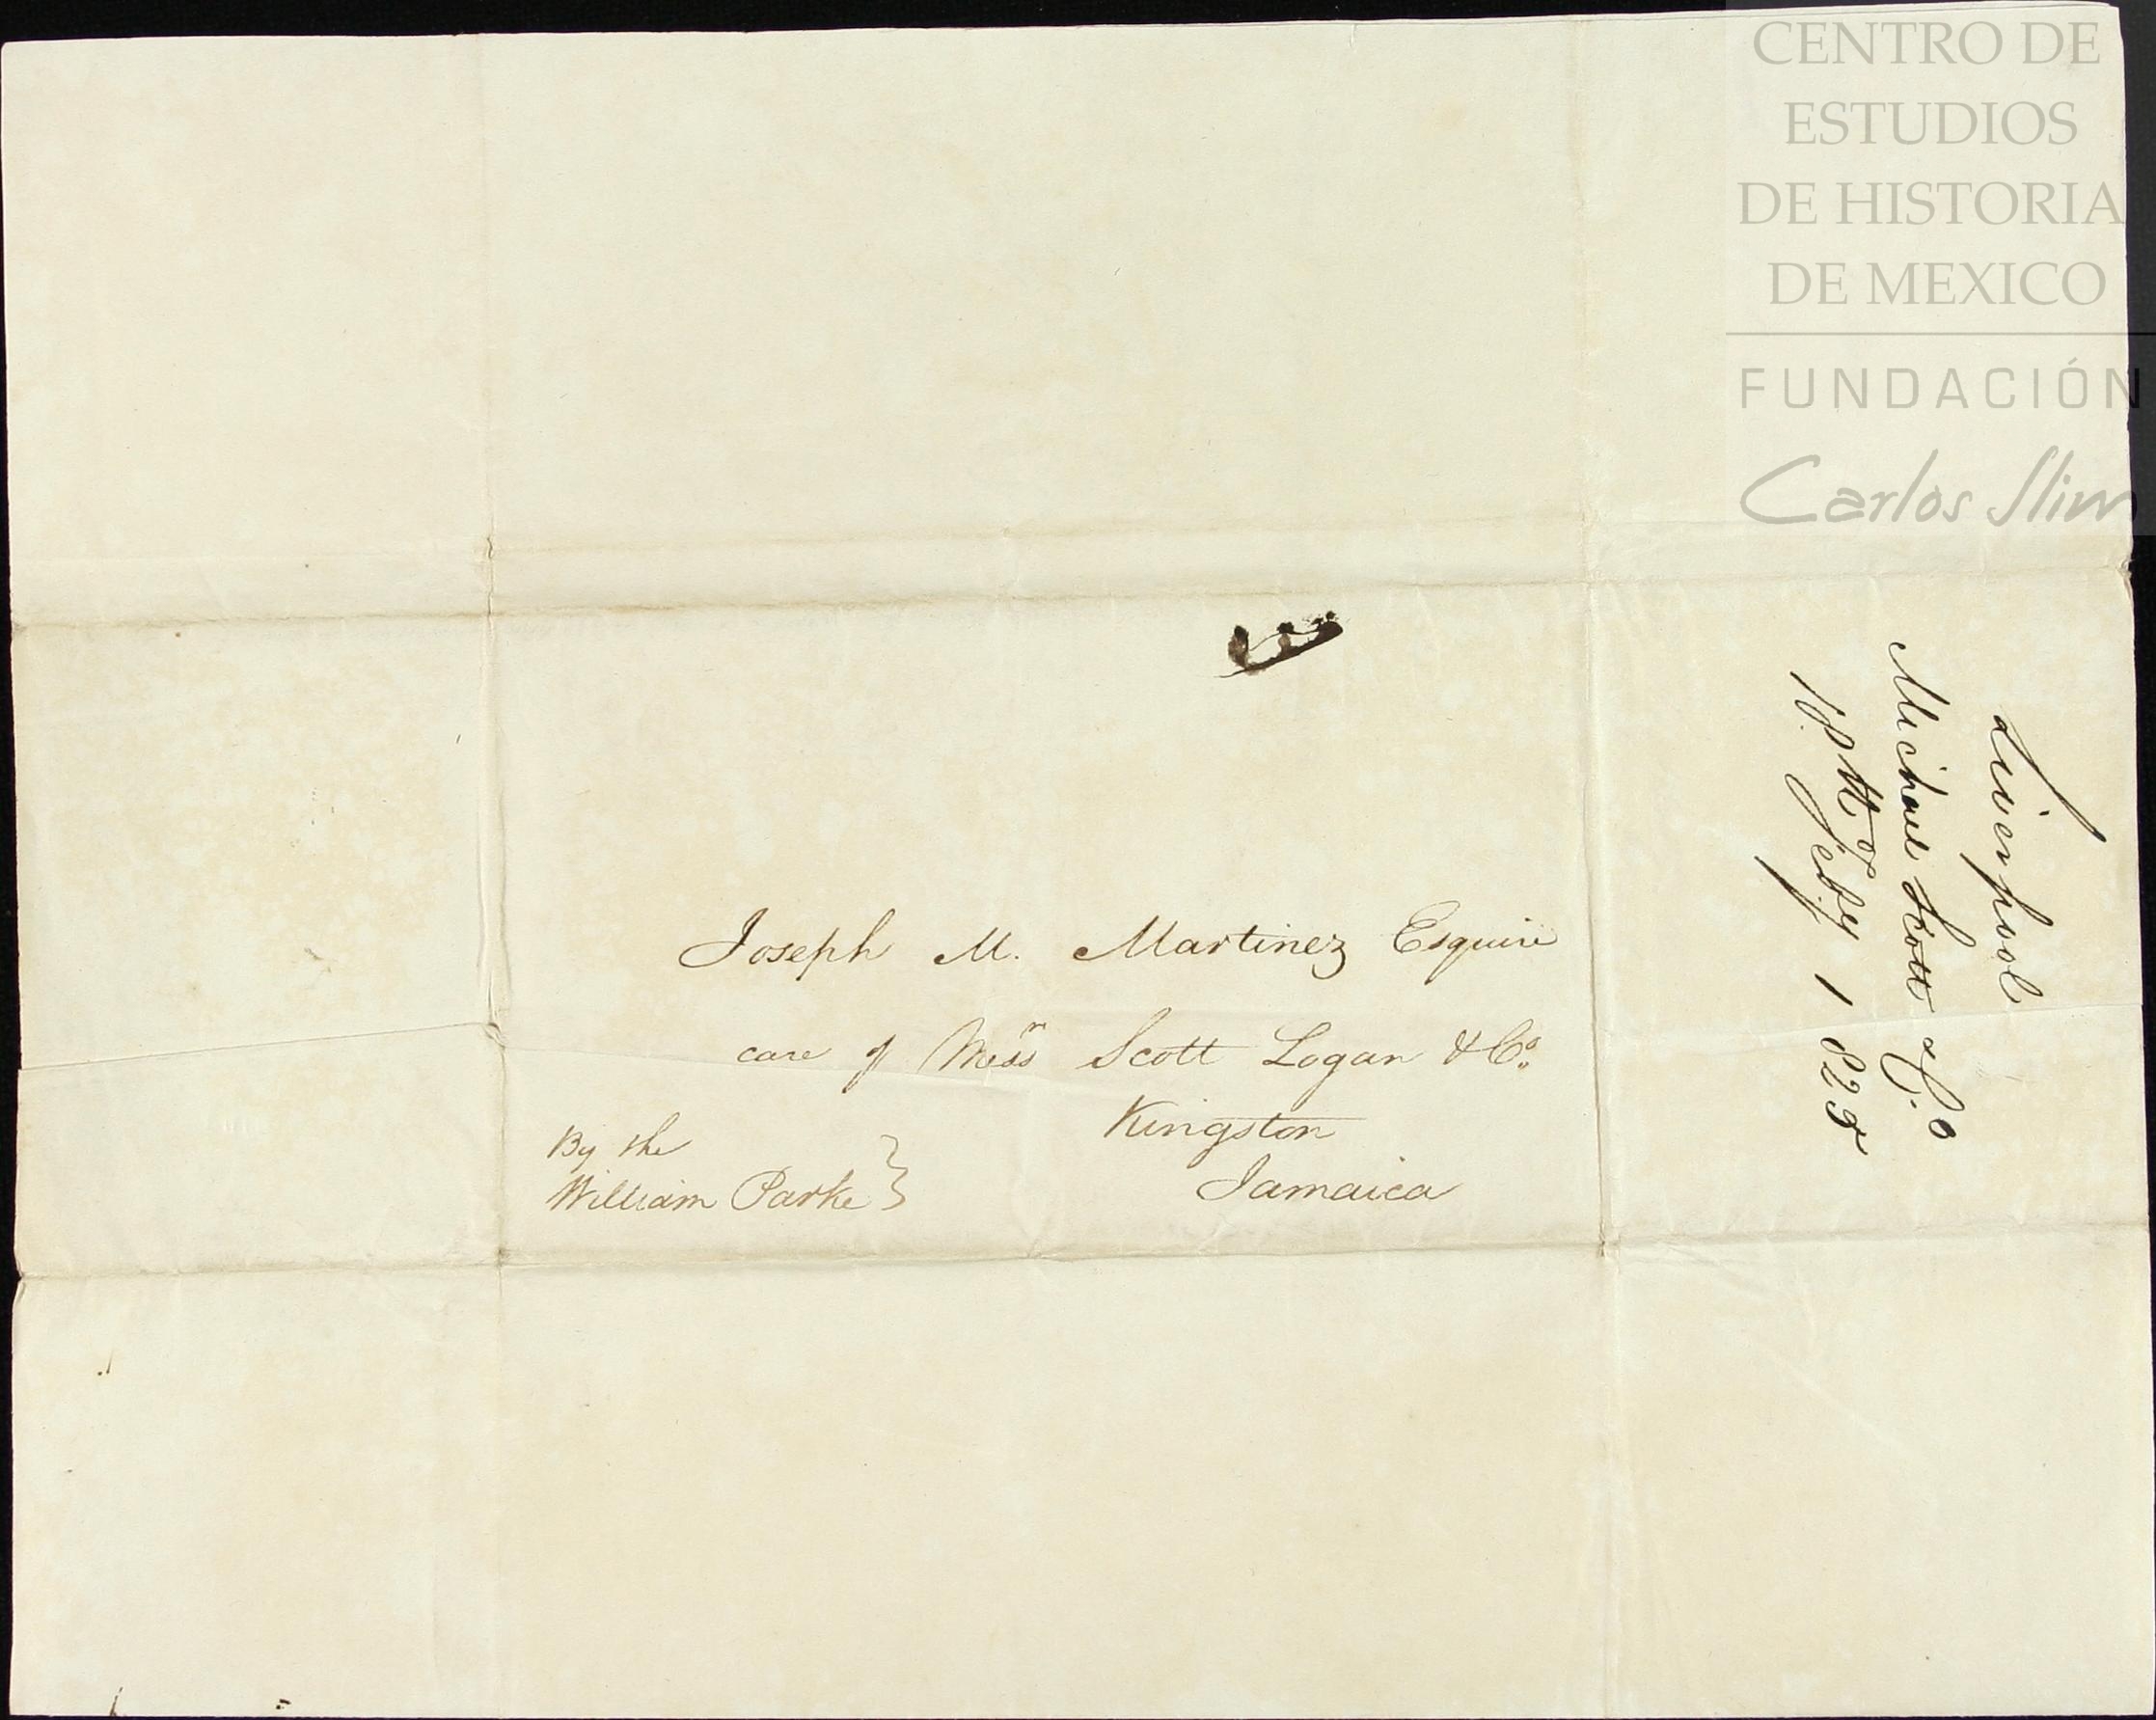 CENTRO DE
ESTUDIOS
DE HISTORIA
DE MEXICO
FUNDACIÓN
Carlos Slim
Joseph M. Martinez Esquire
care of Mess.rs Scott Logan & Co.
Kingston
Jamaica
By the
William Parke }
Liverpool
Michael Scott & Co
Feby 182